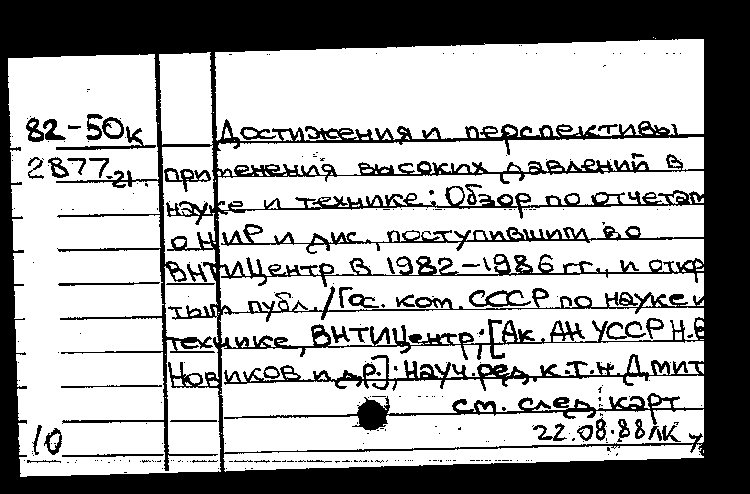 82-50к
2877-21
Достижения и перспективы
применения высоких давлений в
науке и технике: Обзор по отчетам
о НИР и дис., поступившим во
ВНТИЦентр в 1982-1986 гг., и откр
тым публ./Гос. ком. СССР по науке и
технике, ВНТИЦентр; [Ак. АН УССР Н.В
Новиков и др.]; Науч. ред. к.т.н. Дмит
см. след. карт
10
22.08.88 ЛК